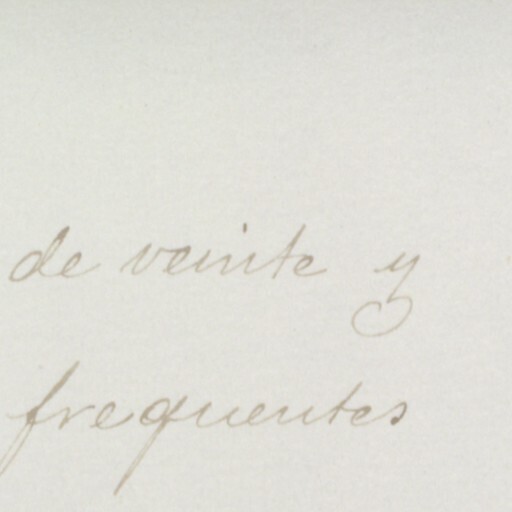 de veinte y
frequentes